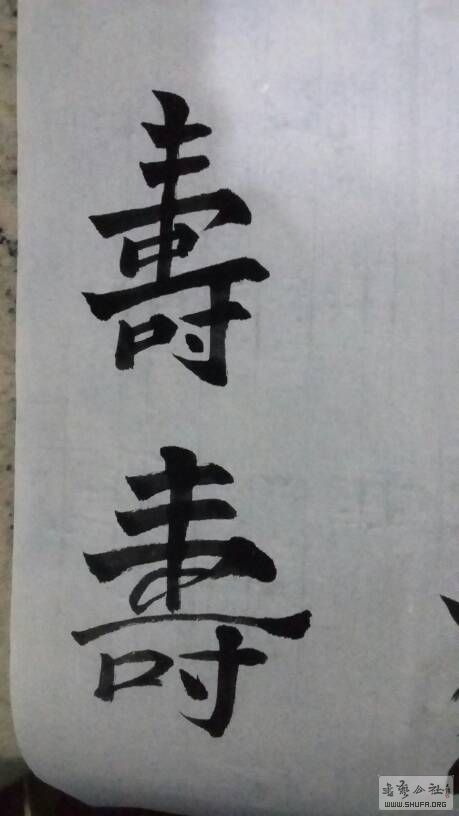 壽
壽
書艺公社
WWW.SHUFA.ORG